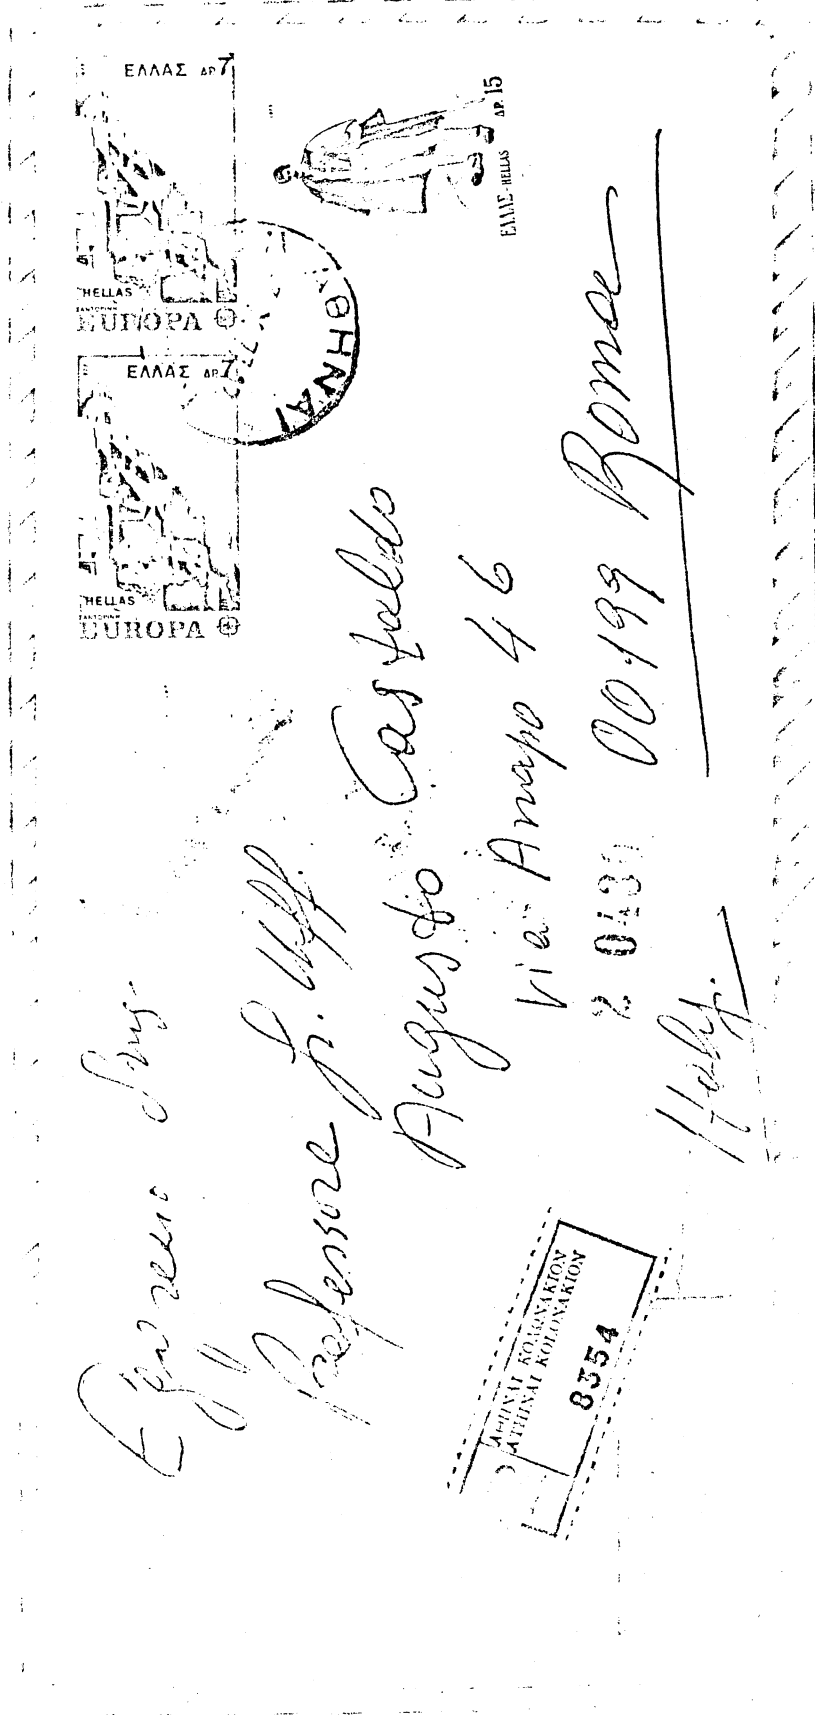 ΕΛΛΑΣ ΔΡ 7
HELLAS
EUROPA
ΕΛΛΑΣ ΔΡ 7
HELLAS
EUROPA
ΕΛΛΑΣ-HELLAS ΔΡ. 15
ΑΘΗΝΑΙ
Professore
Augusto Castaldo
via Anapo 46
00199 Roma
Italy.
ΑΘΗΝΑΙ ΚΟΛΩΝΑΚΙΟΝ
ATHINAI KOLONAKION
8354